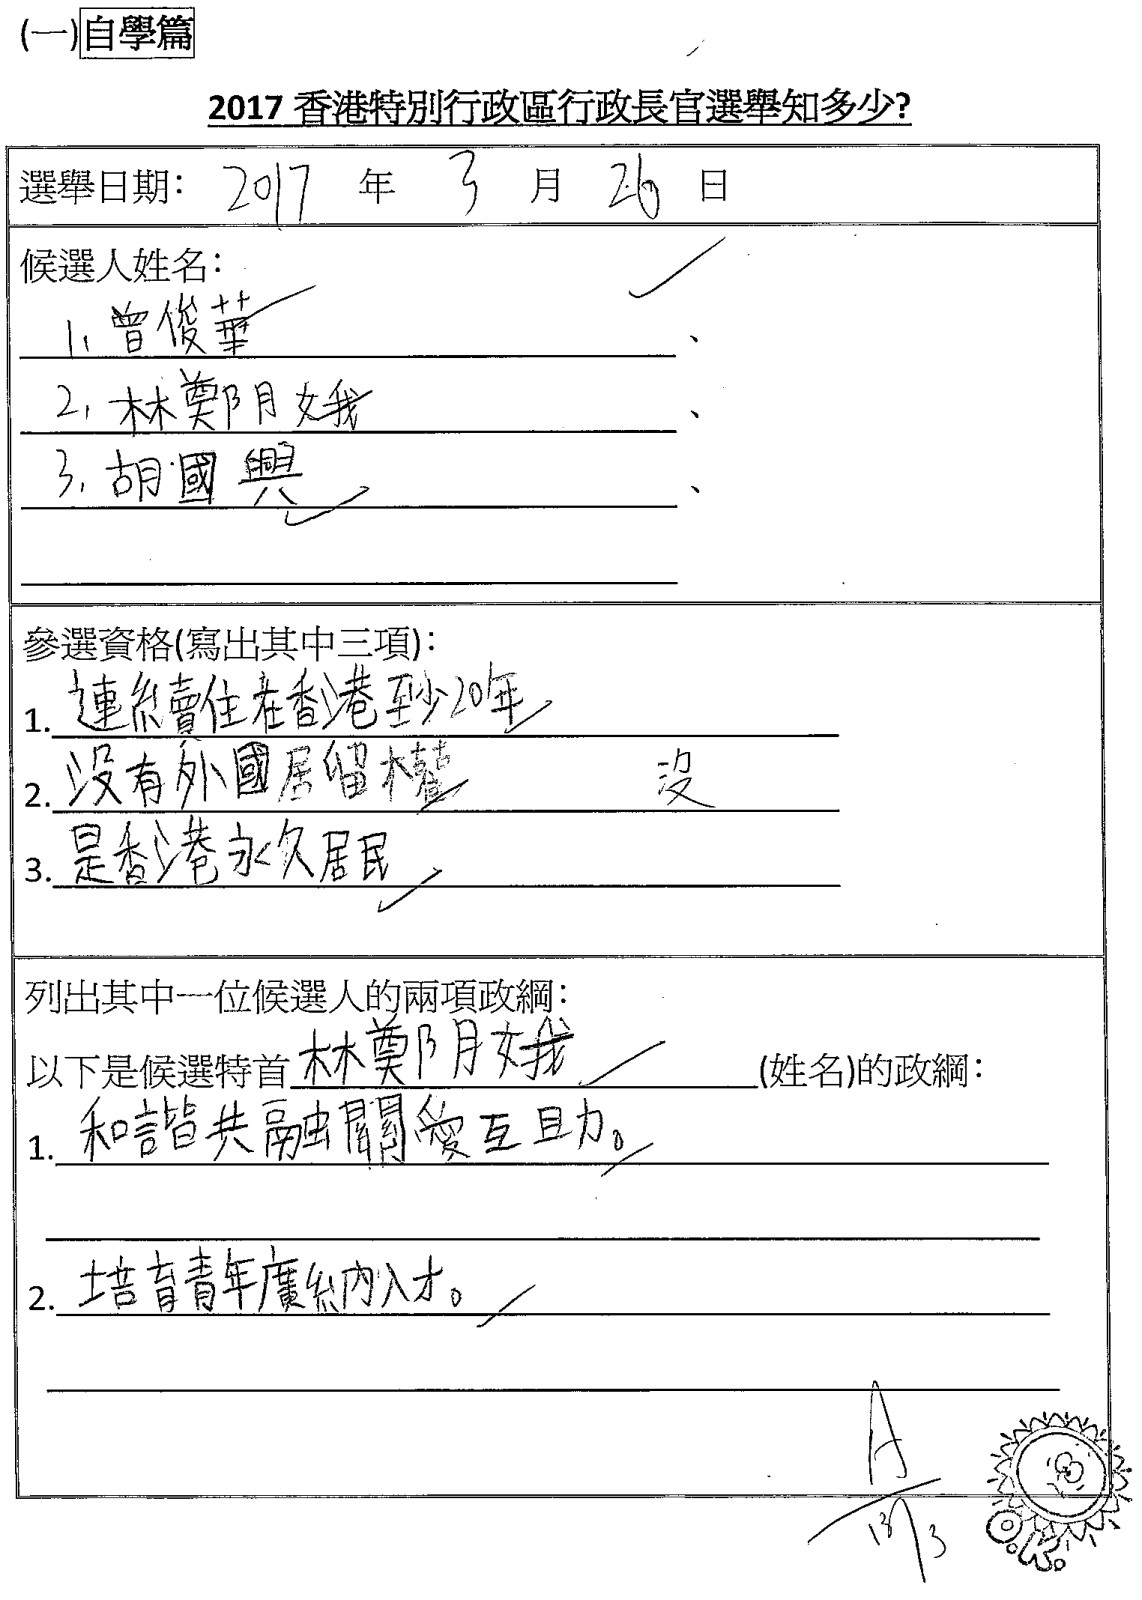 (一)自學篇
2017 香港特別行政區行政長官選舉知多少?
選舉日期: 2017 年 3 月 26 日
候選人姓名:
1. 曾俊華、
2. 林鄭月娥、
3. 胡國興、
參選資格(寫出其中三項):
1. 連續住在香港至少20年
2. 沒有外國居留權 沒
3. 是香港永久居民
列出其中一位候選人的兩項政綱:
以下是候選特首 林鄭月娥 (姓名)的政綱:
1. 和諧共融關愛互助。
2. 培育青年廣納人才。
A
O.K.